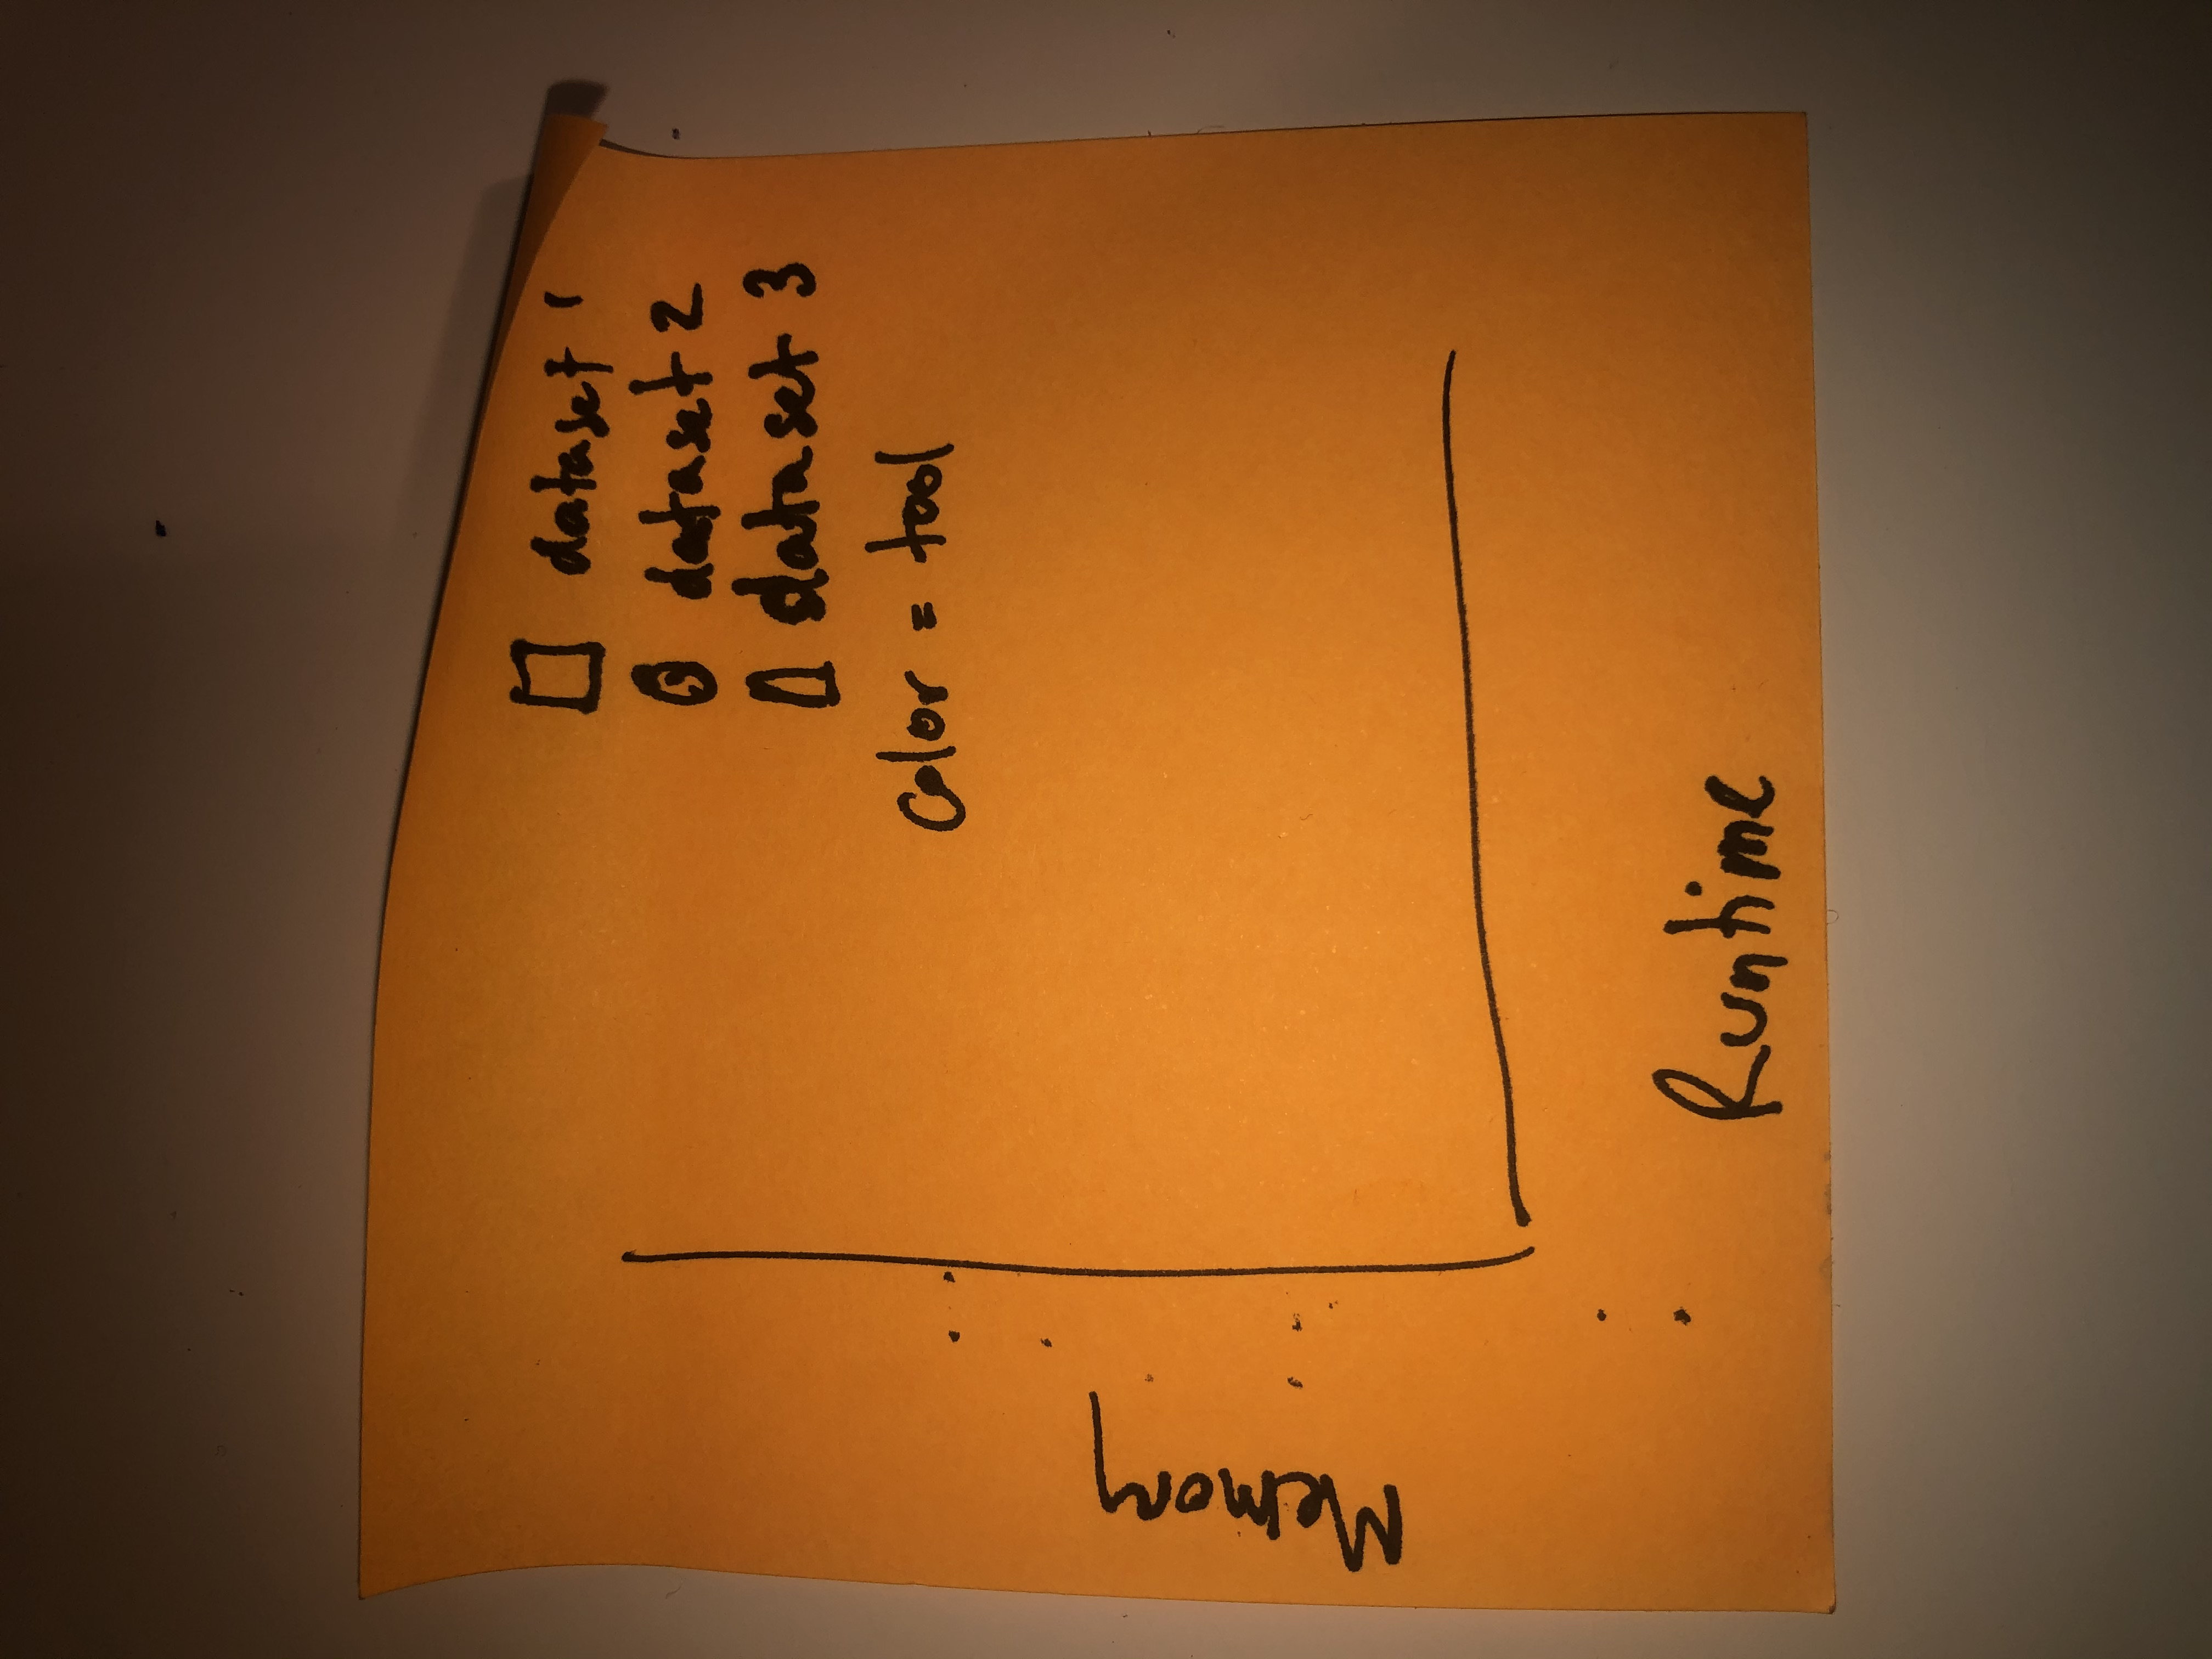 dataset 1
dataset 2
dataset 3
color = tool
Memory
Runtime